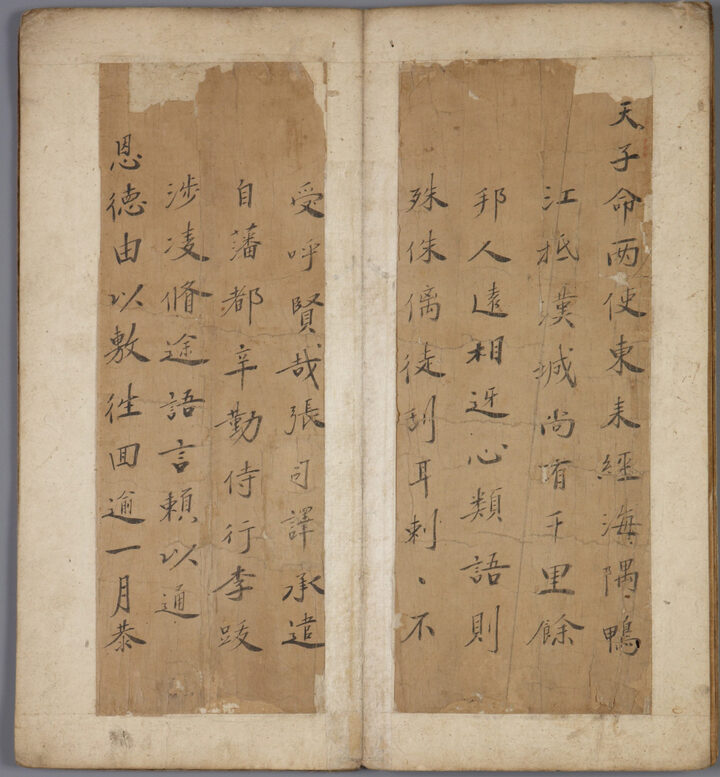 天子命两使東来經海隅鴨
江抵漢城尚有千里餘
邦人遠相迓心類語則
殊侏偊徒刮耳刺、不
受呼賢哉張司譯承遣
自藩都辛勤侍行李跋
涉凌脩途語言賴以通
恩德由以敷徃回逾一月恭